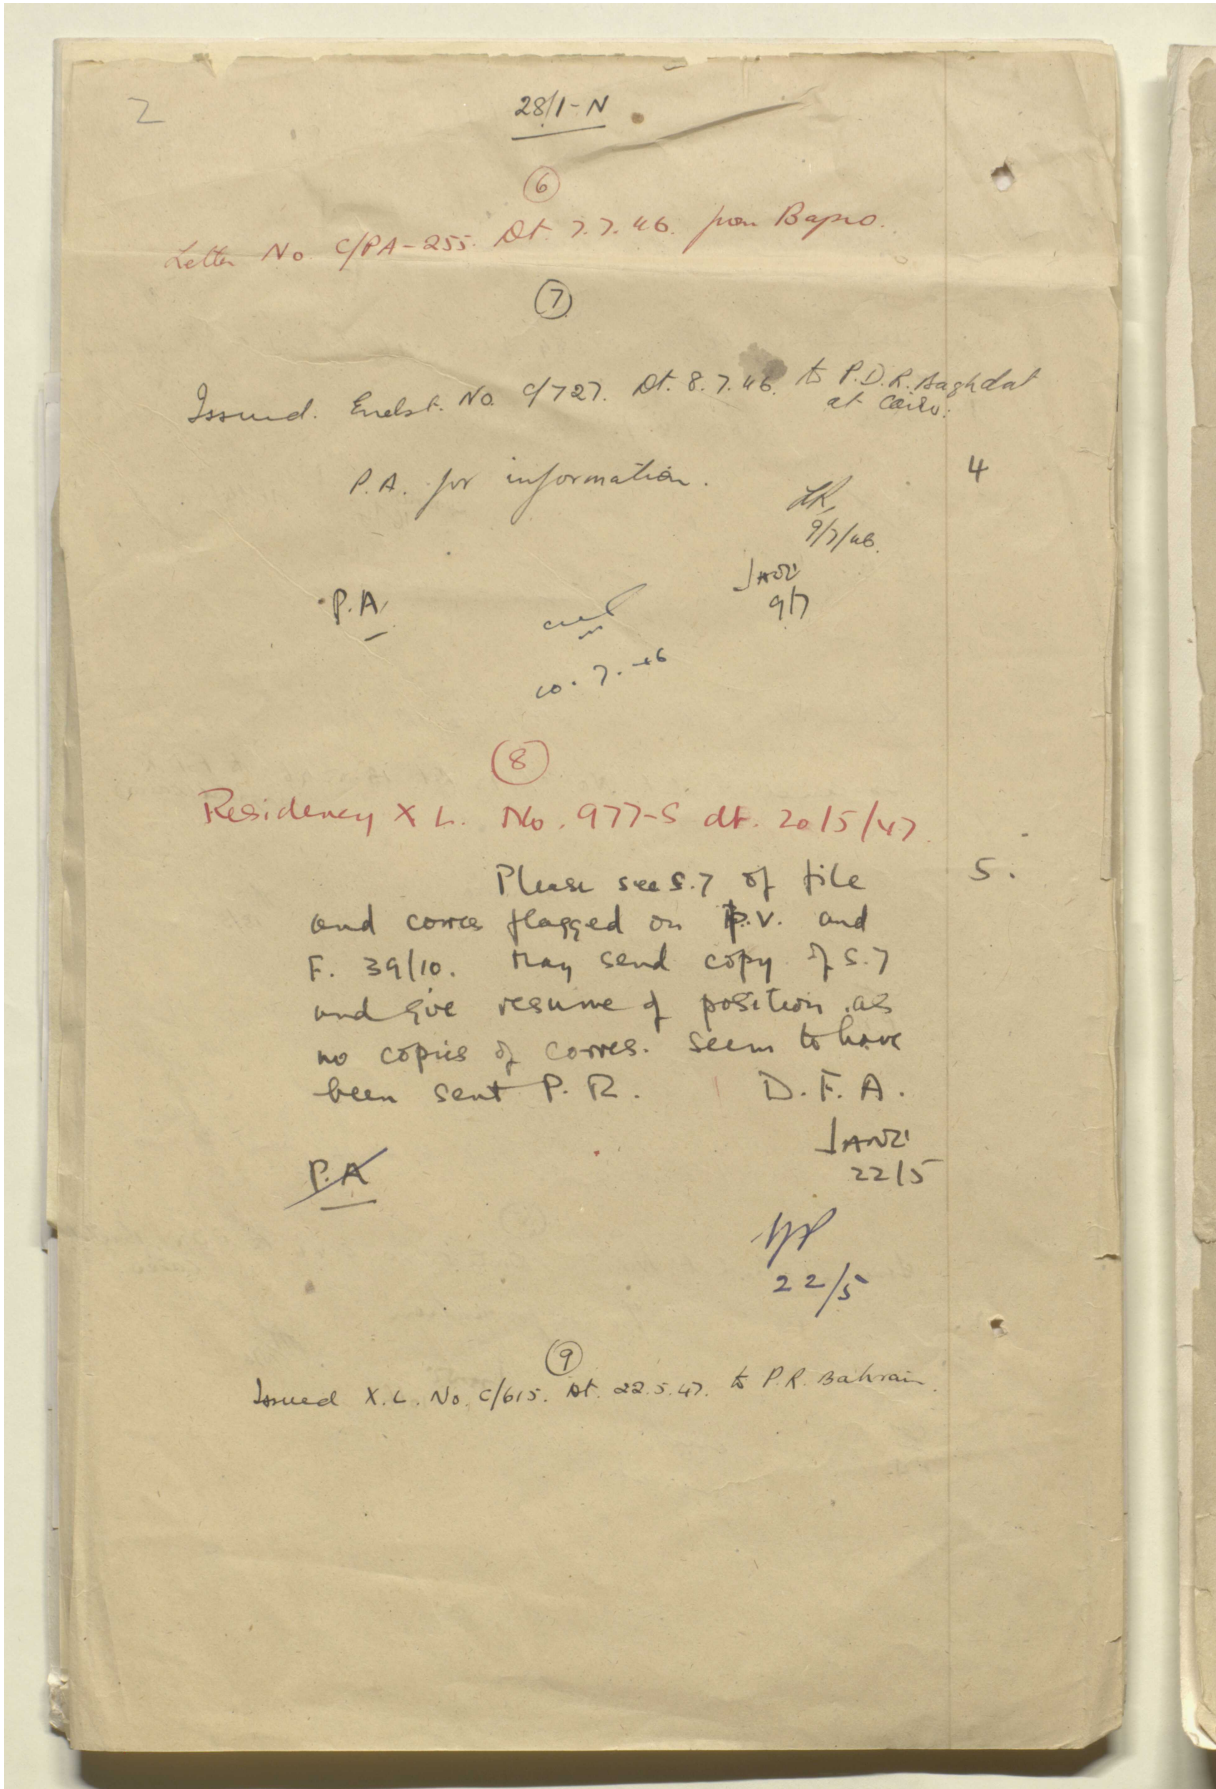 2
28/1-N
6
Letter No C/PA-255. Dt. 7.7.46. from Bapco.
7
Issued. Endst. No. C/727. Dt. 8.7.46. to P.D.R. Baghdad
at Cairo.
P.A. for information.
4
9/7/46.
9/7
P.A.
10.7.46
8
Residency X L. No. 977-S dt. 20/5/47
Please see S.7 of file
5.
and corres flagged on P.V. and
F. 39/10. May send copy of S.7
and give resume of position as
no copies of corres. seem to have
been sent P.R. D.F.A.
22/5
P.A
22/5
9
Issued X.L. No. C/615. Dt. 22.5.47. to P.R. Bahrain.